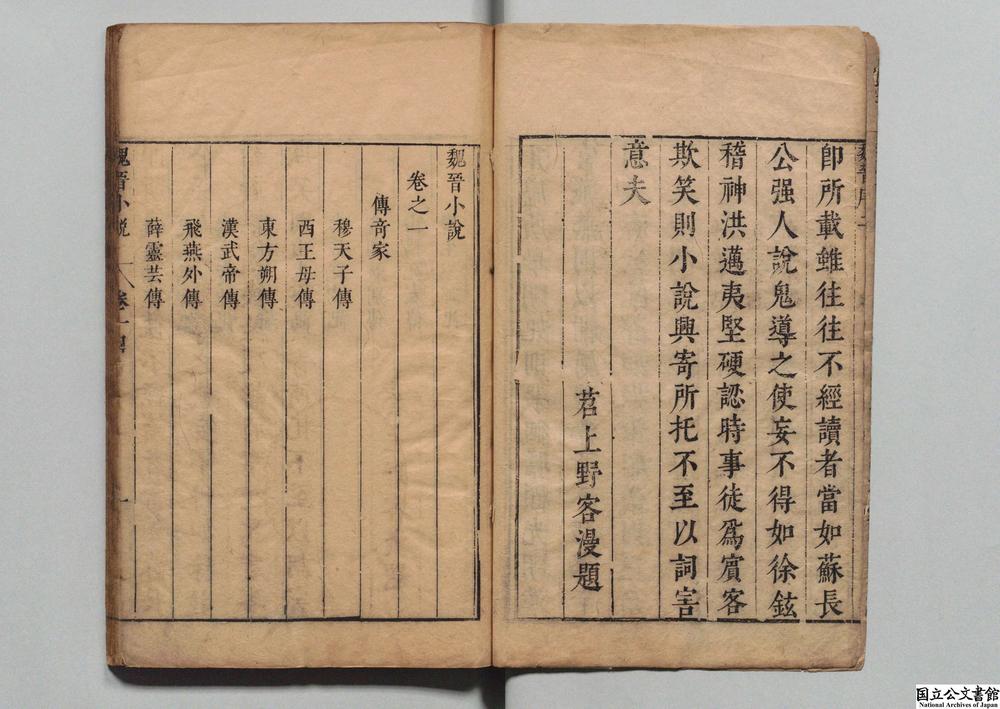 即所載雖往往不經讀者當如蘇長
公强人說鬼導之使妄不得如徐鉉
稽神洪邁夷堅硬認時事徒爲賓客
欺笑則小說興寄所托不至以詞害
意夫
苕上野客漫題
魏晉小說
卷之一
傳奇家
穆天子傳
西王母傳
東方朔傳
漢武帝傳
飛燕外傳
薛靈芸傳
魏晉小說
国立公文書館
National Archives of Japan